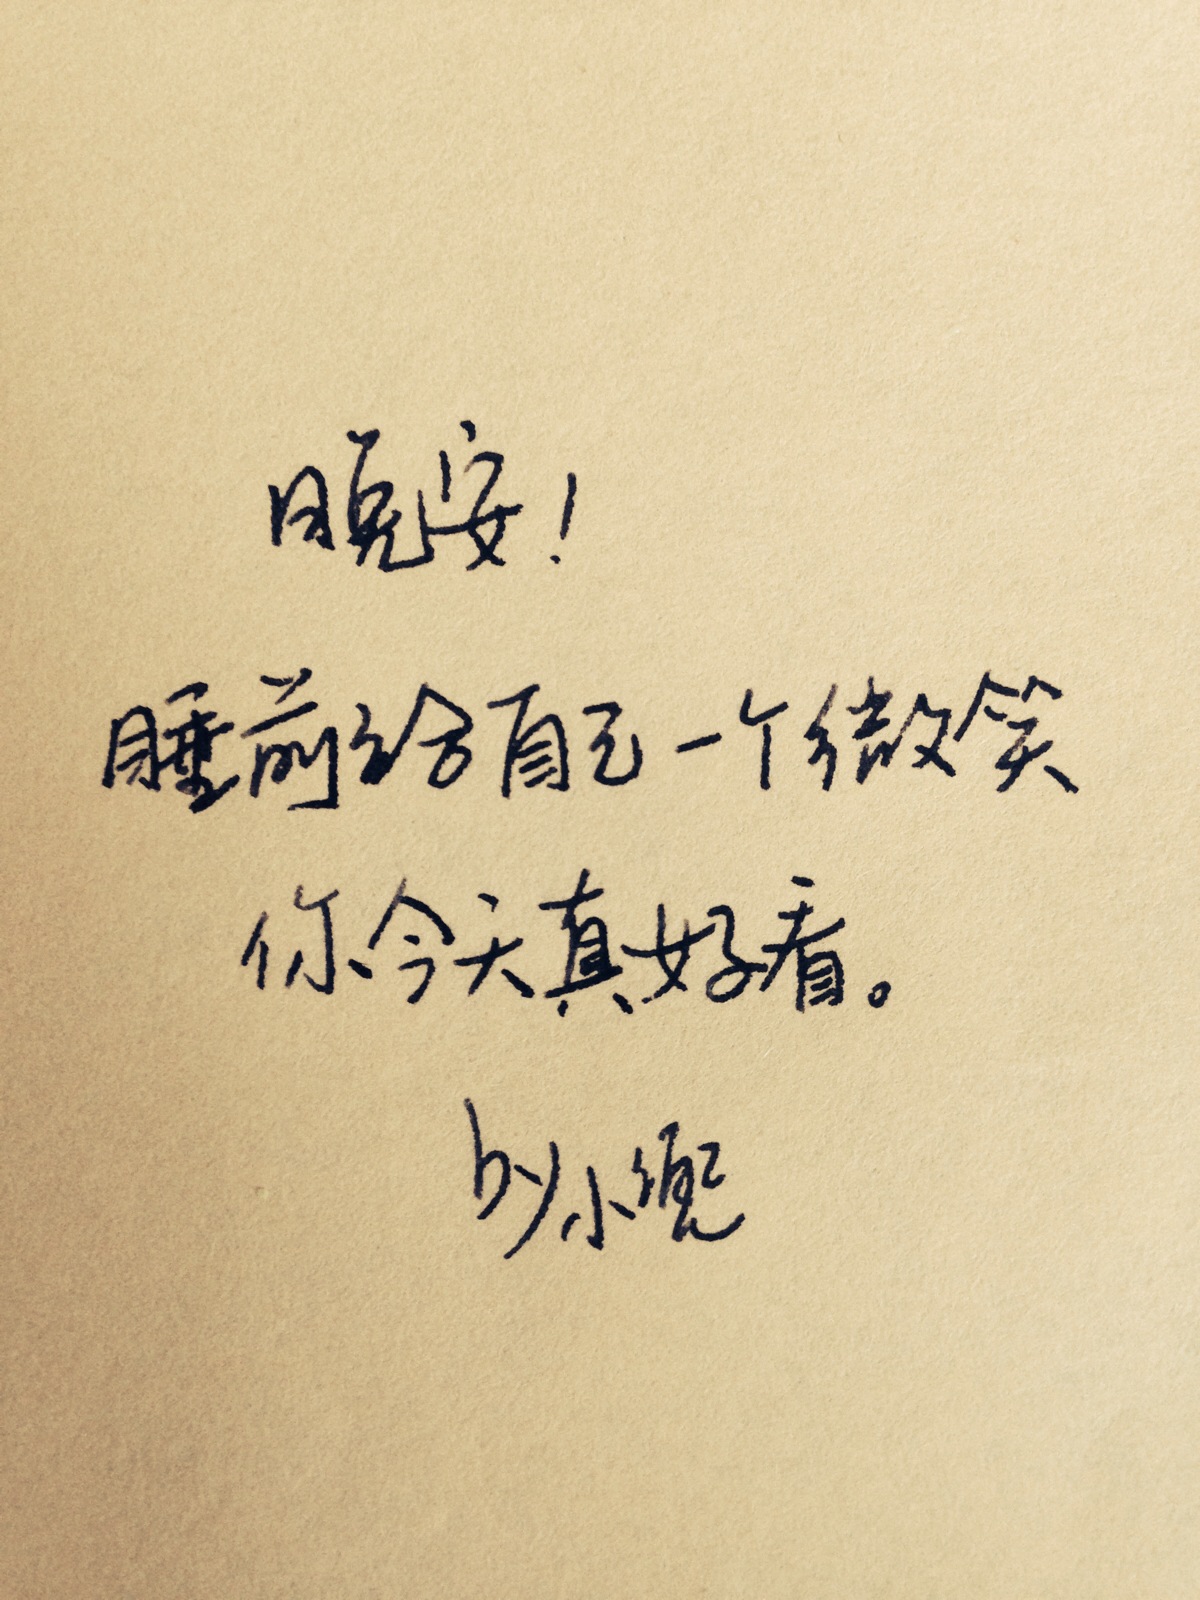 晚安！
睡前给自己一个微笑
你今天真好看。
by小兜